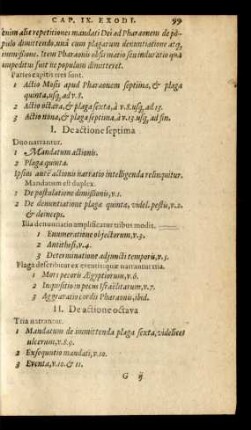 CAP. IX. EXODI. 99
enim aliæ repetitiones mandati Dei ad Pharaonem de po-
pulo dimittendo, unà cum plagarum denuntiatione
immissione. Item Pharaonis obstinatio seu induratio quâ
impeditus fuit ne populum dimitteret.
Partes capitis tres sunt.
1 Actio Mosis apud Pharaonem septima, & plaga
quinta, usq, ad v.8.
2 Actio octava, & plaga sexta, à v.8. usq, ad 13.
3 Actio nona, & plaga septima, à v.13. usq, ad fin.
I. De actione septima
Duo narrantur.
1 Mandatum actionis.
2 Plaga quinta.
Ipsius autē actionis narratio intelligenda relinquitur.
Mandatum est duplex.
1 De postulatione dimissionis, v.1.
2 De denuntiatione plagæ quintæ, videl. pestis, v.2.
& deinceps.
Illa denuntiatio amplificatur tribus modis.
1 Enumeratione objectorum, v.3.
2 Antithesi, v.4.
3 Determinatione adjuncti temporis, v.5.
Plaga describitur ex eventis quæ narrantur tria.
1 Mors pecoris Ægyptiorum, v.6.
2 Inspectio in pecus Israëlitarum, v.7.
3 Aggravatio cordis Pharaonis, ibid.
II. De actione octava
Tria narrantur.
1 Mandatum de immittenda plaga sexta, videlicet
ulcerum, v.8.9.
2 Exsequutio mandati, v.10.
3 Eventa, v.10. & 11.
G ij